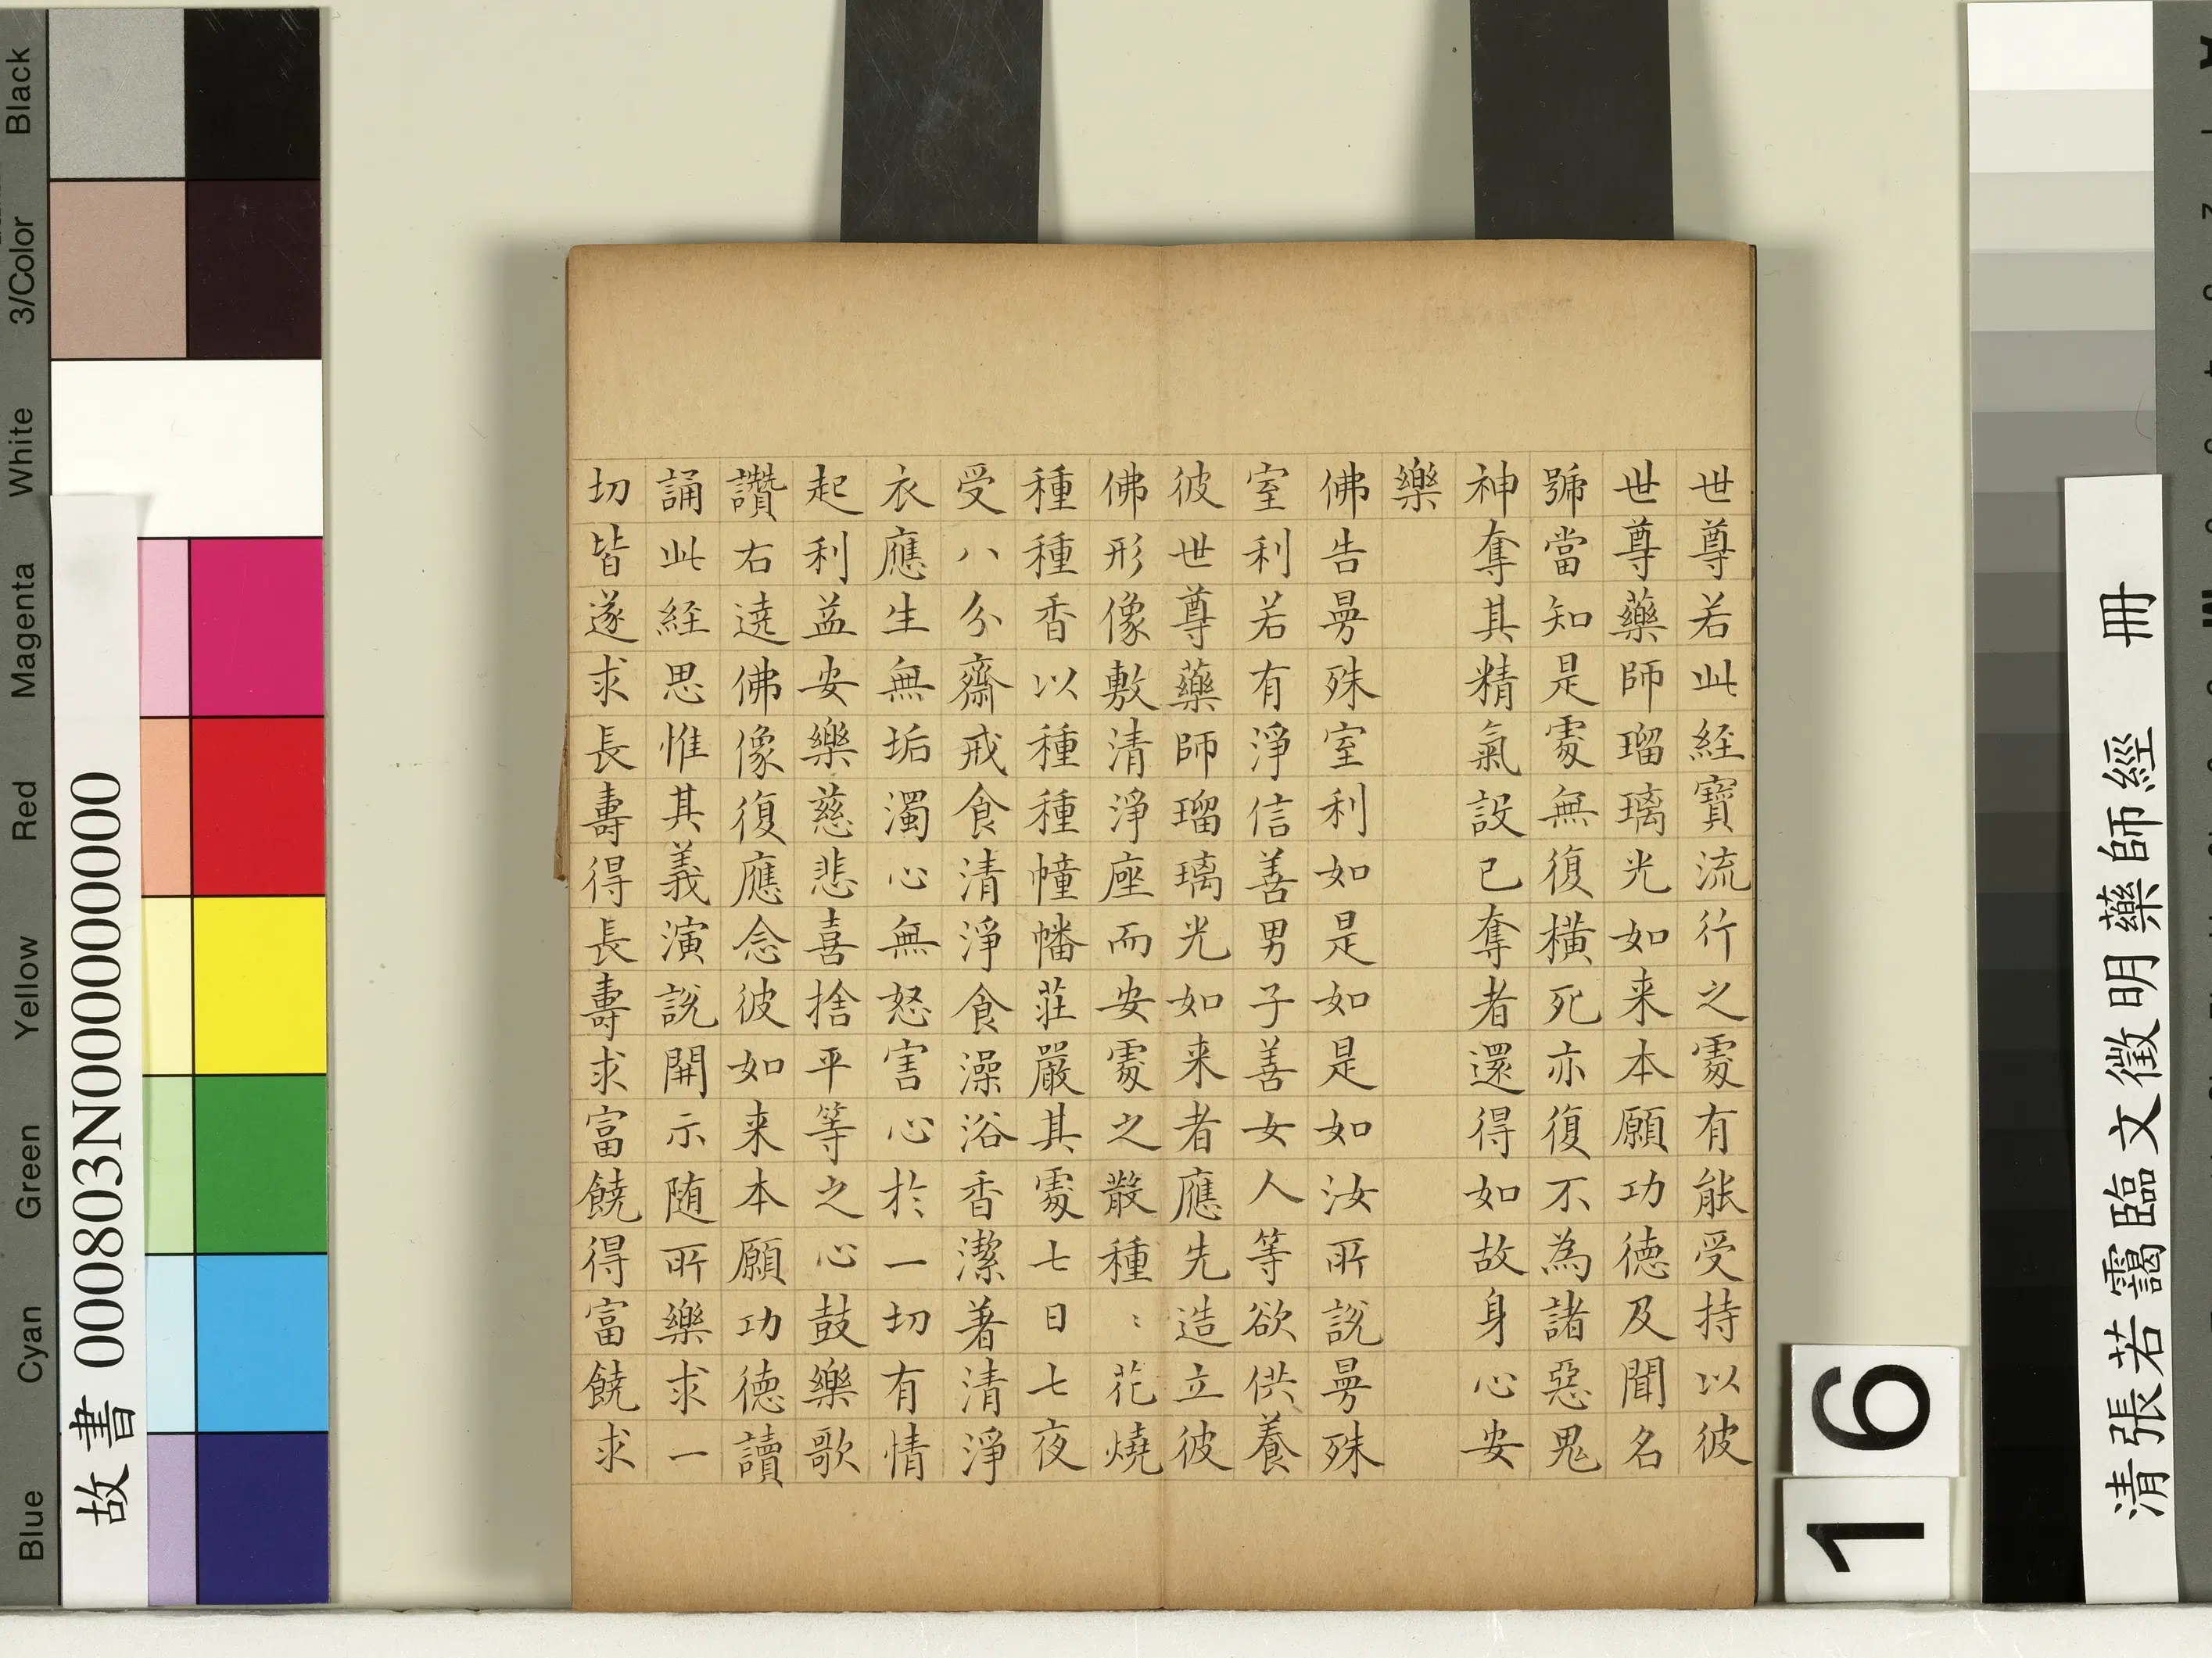 世尊若此経寶流行之處有能受持以彼
世尊藥師瑠璃光如来本願功徳及聞名
號當知是處無復橫死亦復不為諸惡鬼
神奪其精氣設已奪者還得如故身心安
樂
佛告曼殊室利如是如是如汝所說曼殊
室利若有淨信善男子善女人等欲供養
彼世尊藥師瑠璃光如来者應先造立彼
佛形像敷清淨座而安處之散種〻花燒
種種香以種種幢幡莊嚴其處七日七夜
受八分齋戒食清淨食澡浴香潔著清淨
衣應生無垢濁心無怒害心於一切有情
起利益安樂慈悲喜捨平等之心鼓樂歌
讚右遶佛像復應念彼如来本願功徳讀
誦此経思惟其義演說開示随所樂求一
切皆遂求長壽得長壽求富饒得富饒求
清張若靄臨文徵明藥師經 冊
16
故書 000803N000000000
Black
3/Color
White
Magenta
Red
Yellow
Green
Cyan
Blue